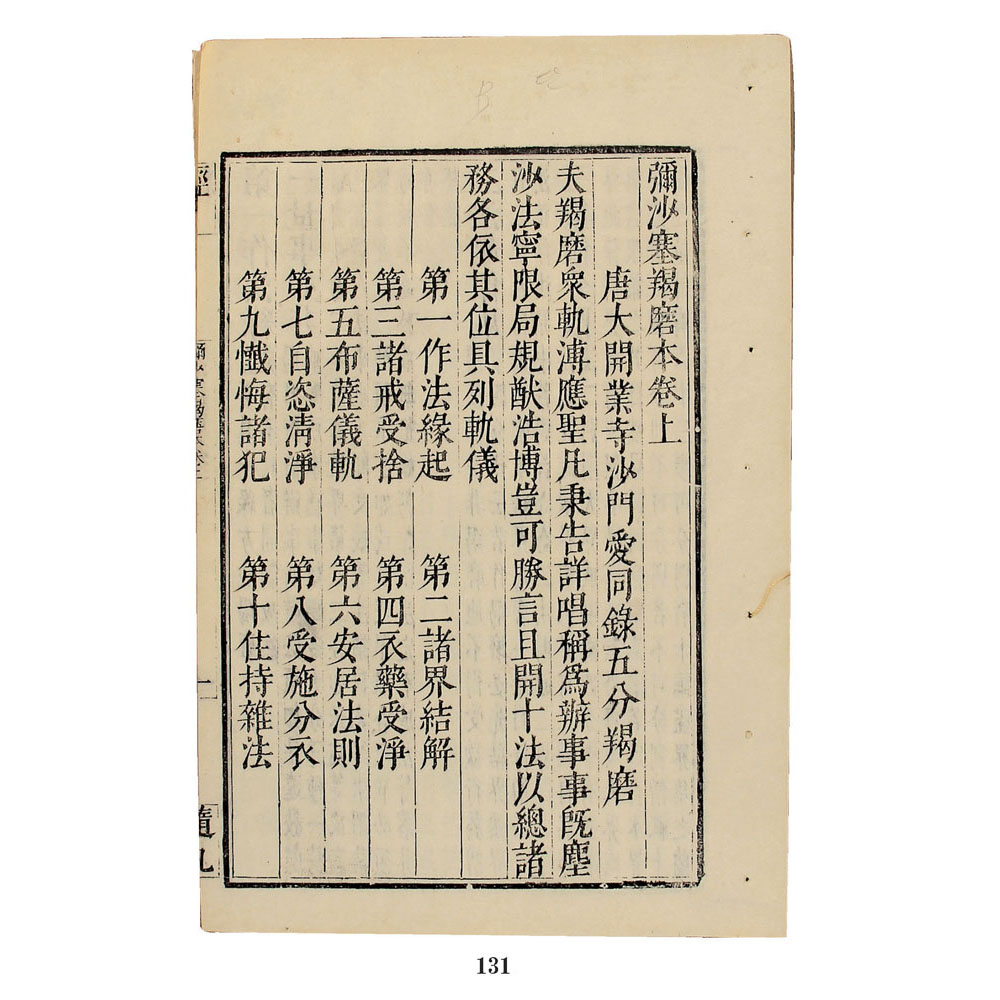 彌沙塞羯磨本卷上
唐大開業寺沙門愛同錄五分羯磨
夫羯磨衆軌溥應聖凡秉告詳唱稱爲辦事事旣塵
沙法寧限局規猷浩博豈可勝言且開十法以總諸
務各依其位具列軌儀
第一作法緣起 第二諸界結解
第三諸戒受捨 第四衣藥受淨
第五布薩儀軌 第六安居法則
第七自恣淸淨 第八受施分衣
第九懺悔諸犯 第十住持雜法
隨九
131